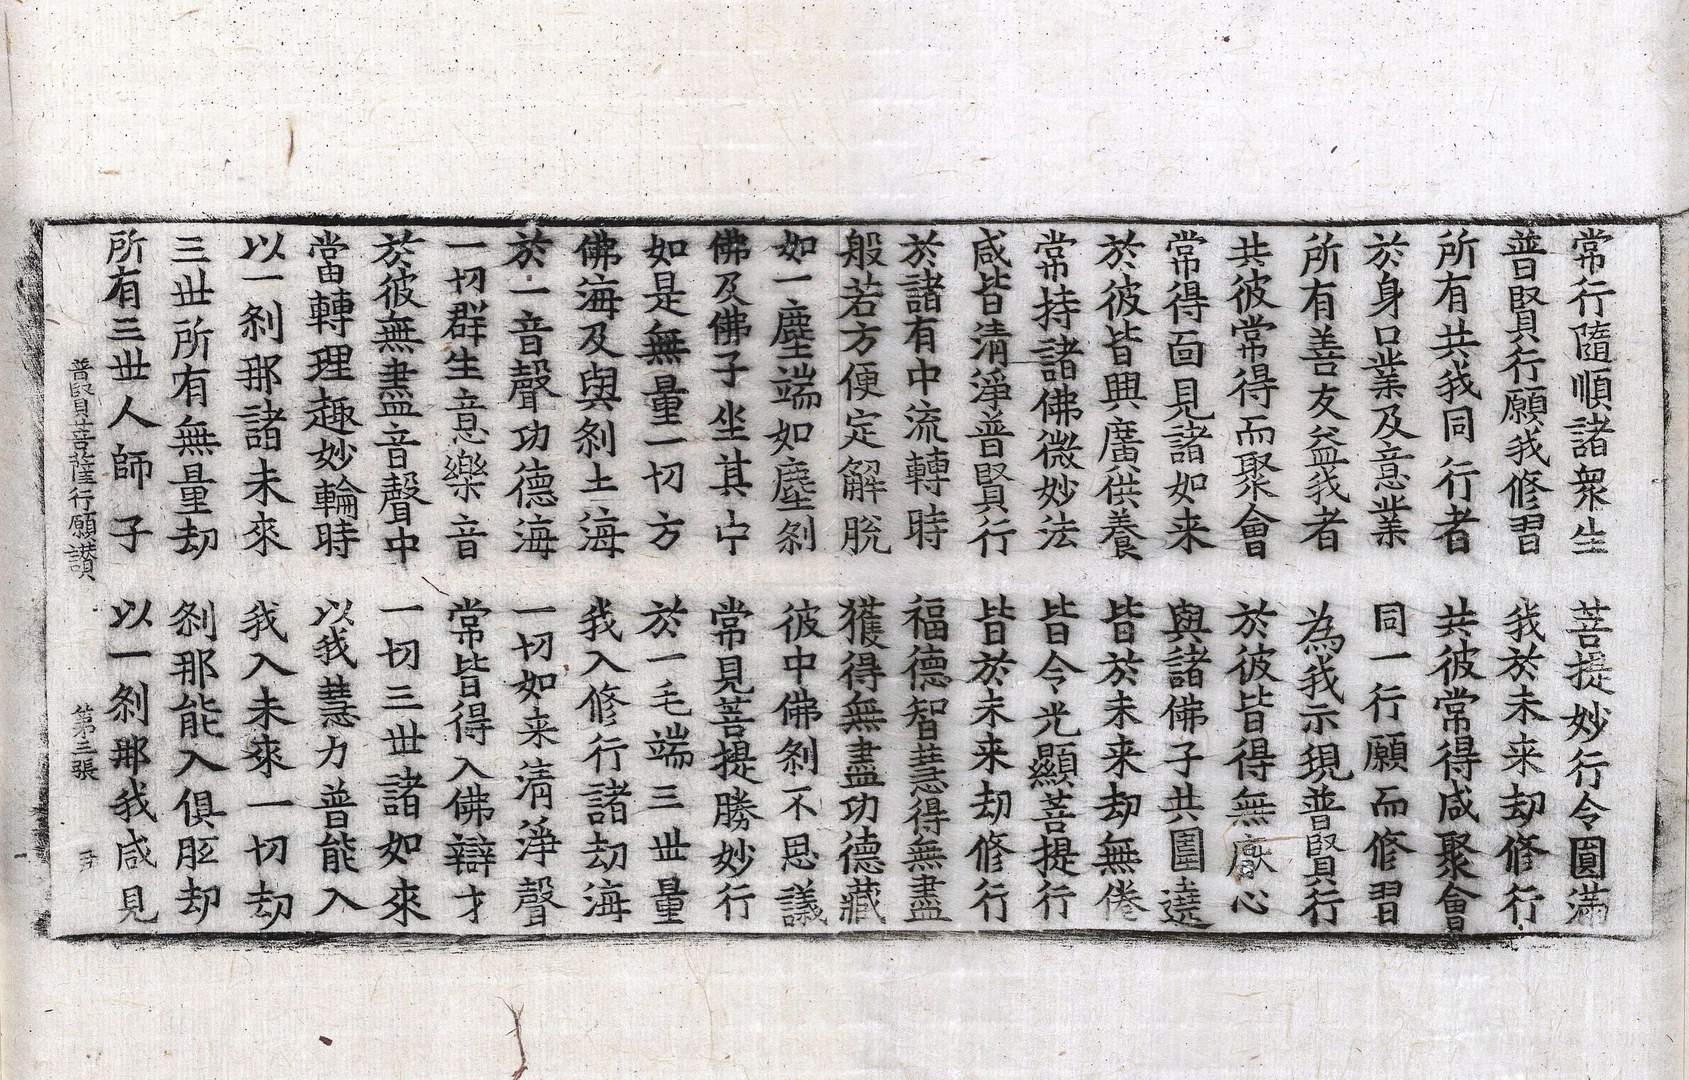 常行隨順諸衆生　菩提妙行令圓滿
普賢行願我修習　我於未来劫修行
所有共我同行者　共彼常得咸聚會
於身口業及意業　同一行願而修習
所有善友益我者　為我示現普賢行
共彼常得而聚會　於彼皆得無猒心
常得面見諸如来　與諸佛子共圍遶
於彼皆興廣供養　皆於未来劫無倦
常持諸佛微妙法　皆令光顯菩提行
咸皆清淨普賢行　皆於未来劫修行
於諸有中流轉時　福德智慧得無盡
般若方便定解脫　獲得無盡功德藏
如一塵端如塵剎　彼中佛剎不思議
佛及佛子坐其中　常見菩提勝妙行
如是無量一切方　於一毛端三世量
佛海及與剎土海　我入修行諸劫海
於一音聲功德海　一切如来清淨聲
一切群生意樂音　常皆得入佛辯才
於彼無盡音聲中　一切三世諸如來
當轉理趣妙輪時　以我慧力普能入
以一剎那諸未來　我入未來一切劫
三世所有無量劫　剎那能入俱胝劫
所有三世人師子　以一剎那我咸見
普賢菩薩行願讃　第三張